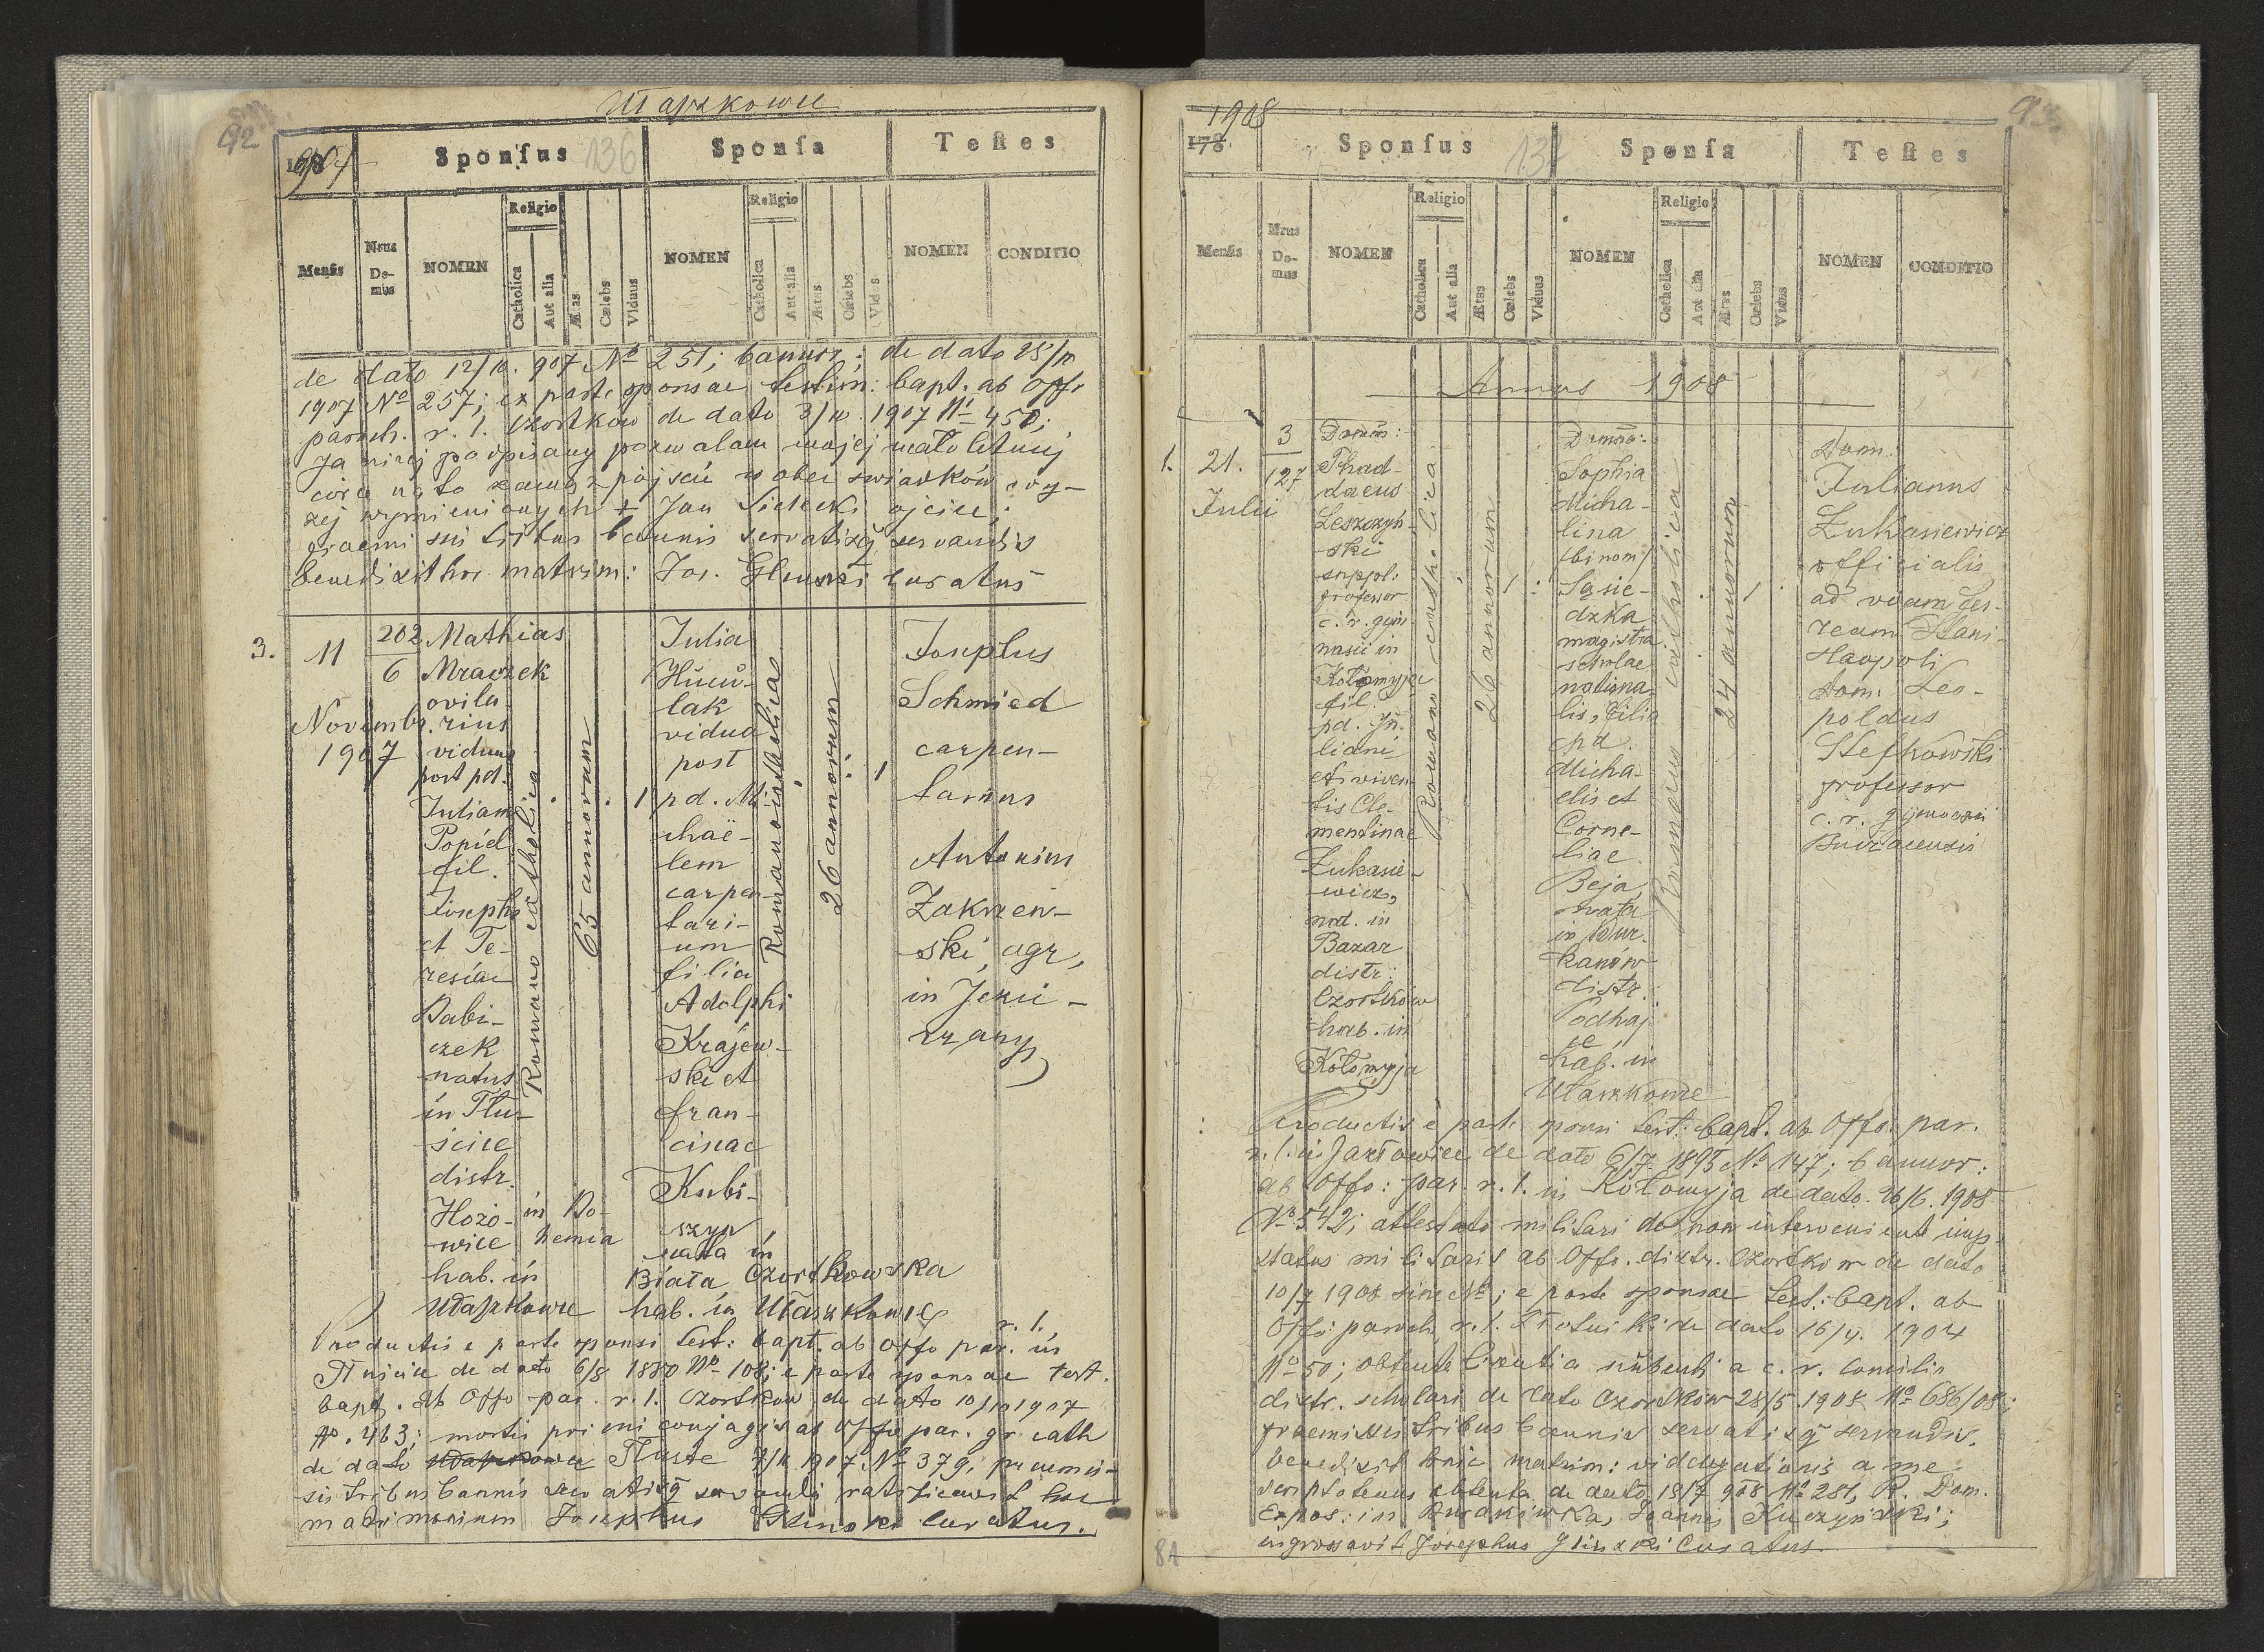 Ułaszkowce
92
1907
Sponsus
136
Sponsa
Testes
Mensis
Nrus Domus
NOMEN
Religio
Catholica
Aut alia
Ætas
Cælebs
Viduus
NOMEN
Religio
Catholica
Aut alia
Ætas
Cælebs
NOMEN
CONDITIO
de dato 12/10. 907 No 251; bannor; de dato 28/10
1907 No 257; ex parte sponsae testim: bapt. ab Offo
paroch. r. l. Czortkow de dato 3/10. 1907 No 450;
Ja niżej podpisany pozwalam mojej małoletniej
córce na to zamąż pójście w obec świadków wy-
żej wymienionych + Jan Sielecki ojciec;
praemissis tribus bannis servatisq servandis
benedixit hoc matrim: Jos. Glinski curatus
3.
11
Novembr.
1907
202
6
Mathias
Mraczek
ovila-
rius
viduus
post pd.
Juliam
Popiel
fil.
Josephi
et Te-
resiae
Babi-
czek
natus
in Tłu-
ścice
distr.
Hozo- in Bo-
wice hemia
hab. in
Ułaszkowce
Romano catholica
65 annorum
1
Julia
Hucu-
lak
vidua
post
pd. Mi
chaë-
lem
carpen-
tari-
um
filia
Adolphi
Krajew-
ski et
fran-
cisae
Kubi-
szyn
nata in
Biała Czortkowska
hab. in Ułaszkowce
Romano catholica
26 annorum
1
Josephus
Schmied
carpen-
tarius
Antonius
Zakrzew-
ski, agr,
in Jezie-
rzany
Productis e parte sponsi test: bapt. ab Offo par. r. l. in
Tłuścice de dato 6/8 1880 No 108; e parte sponsae test.
bapt. ab Offo par. r. l. Czortkow de dato 10/10 1907
No. 463; mortis primi conjugis ab Offo par. gr. cath
de dato Ułaszkowce Tłuste 7/11 1907 No 379, praemis-
sis tribus bannis servatisq servandis ratificavit hoc
matrimonium Josephus Glinski curatus.
1908
93
178
Sponsus
137
Sponsa
Testes
Mensis
Nrus Domus
NOMEN
Religio
Catholica
Aut alia
Ætas
Cælebs
Viduus
NOMEN
Religio
Catholica
Aut alia
Ætas
Cælebs
Viduus
NOMEN
CONDITIO
Annus 1908
1.
21.
Julii
3
127
Domin:
Thad-
daeus
Leszczyń-
ski
suppl:
professor
c. r. gym
nasii in
Kołomyja
fil.
pd. Ju-
liani
et viven-
tis Cle-
mentinae
Łukasie-
wicz,
nat. in
Bazar
distr:
Czortków
hab. in
Kołomyja
Romano catholica
26 annorum
1
Sophia
Micha-
lina
/binom/
Sąsie-
dzka
magistra
scholae
nationa-
lis, filia
pd.
Micha-
elis et
Corne-
liae
Beja,
nata
in Bur-
kanow
distr.
Podhaj
ce
hab. in
Ułaszkowce
Romano catholica
24 annorum
1
Dom.
Julianus
Łukasiewicz
officialis
ad viam fer-
ream Stani-
slaopoli
Dom. Leo-
poldus
Stefkowski
professor
c. r. gymnasii
Buczacensis
Productis e parte sponsi test: bapt. ab Offo: par.
r. l. in Jazłowiec de dato 6/7 1895 No 147; bannor:
ab Offo: par. r. l. in Kołomyja de dato. 26/6. 1908
No 542; attestato militari de non intervenient imp.
status militaris ab Offo. distr. Czortkow de dato
10/7 1908 sine No; e parte sponsae test: bapt. ab
Offo: paroch. r. l. Złotniki de dato 16/4. 1904
No 50; obtenta licentia nubendi a c. r. consilio
distr. scholari de dato Czortkow 28/5 1908 No 686/08;
praemissis tribus bannis servatisq servandis,
benedixit huic matrim: vi delegationis a me
scriptotenus obtenta de dato 18/7 908 No 281, R. Dom.
Expos: in Burakówka, Joannes Kuczyński;
ingrossavit Josephus Glinski Curatus.
81